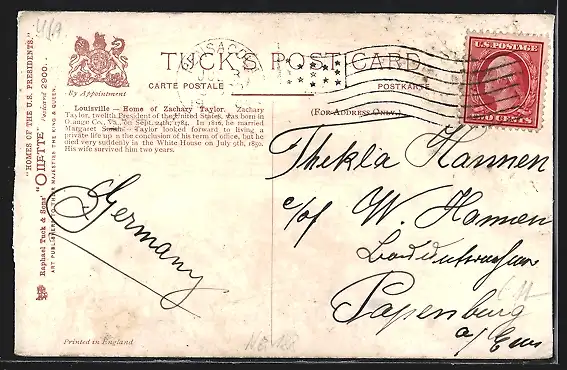 U/A
TUCK'S POST CARD
By Appointment
CARTE POSTALE
POSTKARTE
(FOR ADDRESS ONLY.)
U.S. POSTAGE
TWO CENTS
Louisville — Home of Zachary Taylor. Zachary
Taylor, twelfth President of the United States, was born in
Orange Co., Va., on Sept. 24th, 1784. In 1810, he married
Margaret Smith. Taylor looked forward to living a
private life upon the conclusion of his term of office, but he
died very suddenly in the White House on July 9th, 1850.
His wife survived him two years.
"HOMES OF THE U.S. PRESIDENTS."
Raphael Tuck & Sons' "OILETTE" Postcard 2900.
ART PUBLISHERS TO THEIR MAJESTIES THE KING & QUEEN.
Germany
Thekla Hannen
c/of W. Hannen
Papenburg
a/Ems
Printed in England